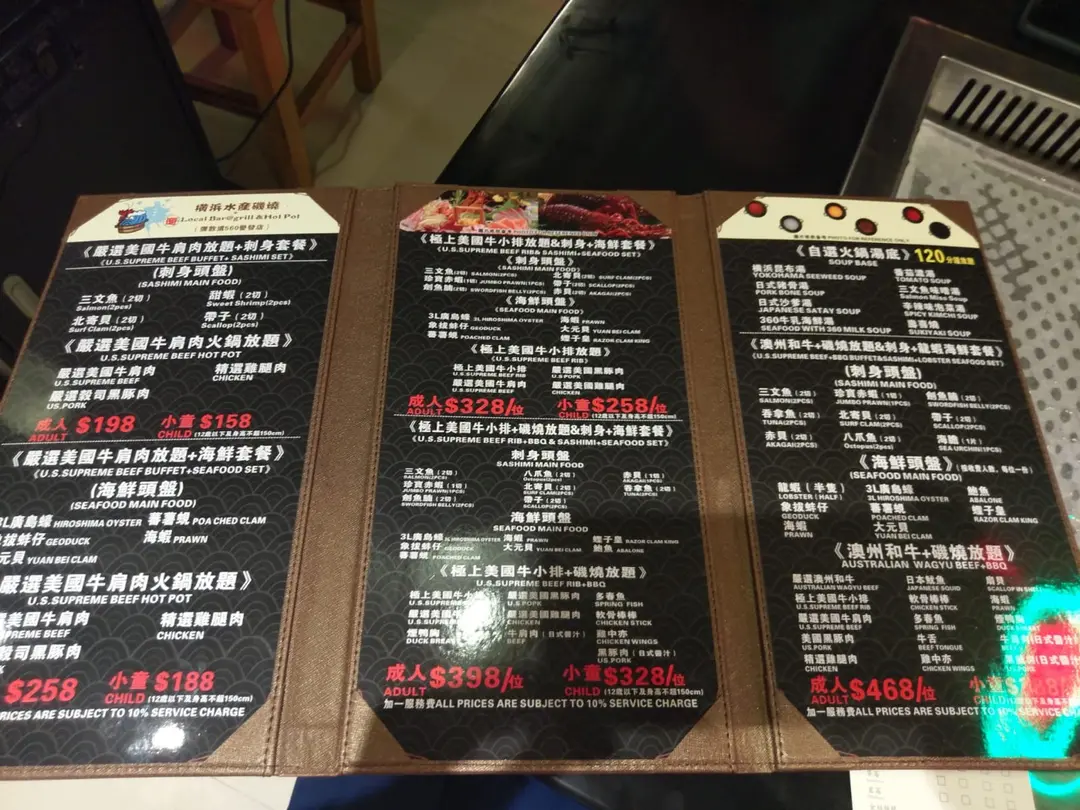 橫浜水産磯燒
Local Bar@grill & Hot Pot
《嚴選美國牛肩肉放題+刺身套餐》
《U.S.SUPREME BEEF BUFFET+ SASIMI SET》
(刺身頭盤)
(SASHIMI MAIN FOOD)
三文魚(2切) 甜蝦(2切)
Salmon(2pcs) Sweet Shrimp(2pcs)
北寄貝(2切) 帶子(2切)
Surf Clam(2pcs) Scallop(2pcs)
《嚴選美國牛肩肉火鍋放題》
U.S.SUPREME BEEF HOT POT
嚴選美國牛肩肉 精選雞腿肉
U.S.SUPREME BEEF CHICKEN
嚴選穀司黑豚肉
US.PORK
成人 $198 小童 $158
ADULT CHILD (12歲以下及身高不超150cm)
《嚴選美國牛肩肉放題+海鮮套餐》
《U.S.SUPREME BEEF BUFFET+SEAFOOD SET》
(海鮮頭盤)
(SEAFOOD MAIN FOOD)
3L廣島蠔 HIROSHIMA OYSTER 蕃薯蜆 POACHED CLAM
象拔蚌仔 GEODUCK 海蝦 PRAWN
元貝 YUAN BEI CLAM
嚴選美國牛肩肉火鍋放題》
U.S.SUPREME BEEF HOT POT
選美國牛肩肉 精選雞腿肉
SUPREME BEEF CHICKEN
穀司黑豚肉
$258 小童 $188
CHILD (12歲以下及身高不超150cm)
PRICES ARE SUBJECT TO 10% SERVICE CHARGE
《極上美國牛小排放題&刺身+海鮮套餐》
《U.S.SUPREME BEEF RIB& SASHIMI+SEAFOOD SET》
《刺身頭盤》
(SASHIMI MAIN FOOD)
三文魚(2切) SALMON(2PCS) 北寄貝(2切) SURF CLAM(2PCS)
珍寶赤蝦(1切) JUMBO PRAWN(1PCS) 帶子(2切) SCALLOP(2PCS)
劍魚腩(2切) SWORDFISH BELLY(2PCS) 赤貝(2切) AKAGAI(2PCS)
《海鮮頭盤》
(SEAFOOD MAIN FOOD)
3L廣島蠔 3L HIROSHIMA OYSTER 海蝦 PRAWN
象拔蚌仔 GEODUCK 大元貝 YUAN BEI CLAM
蕃薯蜆 POACHED CLAM 蟶子皇 RAZOR CLAM KING
《極上美國牛小排放題》
(U.S.SUPREME BEEF RIB)
極上美國牛小排 嚴選美國黑豚肉
U.S.SUPREME BEEF RIB US.POPK
嚴選美國牛肩肉 嚴選美國雞腿肉
U.S.SUPREME BEEF CHICKEN
成人 $328/位 小童 $258/位
ADULT CHILD (12歲以下及身高不超150cm)
《極上美國牛小排+磯燒放題&刺身+海鮮套餐》
《U.S.SUPREME BEEF RIB+BBQ & SASHIMI+SEAFOOD SET》
刺身頭盤
SASHIMI MAIN FOOD
三文魚(2切) 八爪魚(2切) 赤貝(1切)
SALMON(2PCS) Octopus(2pcs) AKAGAI(1PCS)
珍寶赤蝦(1切) 北寄貝(2切) 吞拿魚(2切)
JUMBO PRAWN(1PCS) SURF CLAM(2PCS) TUNA(2PCS)
劍魚腩(2切) 帶子(2切)
SWORDFISH BELLY(2PCS) SCALLOP(2PCS)
海鮮頭盤
SEAFOOD MAIN FOOD
3L廣島蠔 3L HIROSHIMA OYSTER 海蝦 PRAWN 蟶子皇 RAZOR CLAM KING
象拔蚌仔 GEODUCK 大元貝 YUAN BEI CLAM 鮑魚 ABALONE
蕃薯蜆 POACHED CLAM
《極上美國牛小排+磯燒放題》
U.S.SUPREME BEEF RIB+BBQ
極上美國牛小排 嚴選美國黑豚肉 多春魚
U.S.SUPREME US.POPK SPRING FISH
嚴選美國牛 嚴選美國雞腿肉 軟骨棒棒
U.S.SUPREME CHICKEN CHICKEN STICK
煙鴨胸 牛肩肉(日式醬汁) 雞中亦
DUCK BREAST BEEF CHICKEN WINGS
黑豚肉(日式醬汁)
US.PORK
成人 $398/位 小童 $328/位
ADULT CHILD (12歲以下及身高不超150cm)
加一服務費ALL PRICES ARE SUBJECT TO 10% SERVICE CHARGE
圖片祇供參考 PHOTO FOR REFERENCE ONLY
《自選火鍋湯底》 120分鐘放題
SOUP BASE
橫浜昆布湯 蕃茄濃湯
YOKOHAMA SEEWEED SOUP TOMATO SOUP
日式豬骨湯 三文魚味噌湯
PORK BONE SOUP Salmon Miso Soup
日式沙爹湯 辛辣味泡菜湯
JAPANESE SATAY SOUP SPICY KIMCHI SOUP
360牛乳海鮮湯 壽喜燒
SEAFOOD WITH 360 MILK SOUP SUKIYAKI SOUP
《澳州和牛+磯燒放題&刺身+龍蝦海鮮套餐》
《U.S.SUPREME BEEF+BBQ BUFFET&SASIMI+LOBSTER SEAFOOD SET》
(刺身頭盤)
(SASHIMI MAIN FOOD)
三文魚(2切) 珍寶赤蝦(1切) 劍魚腩(2切)
SALMON(2PCS) JUMBO PRAWN(1PCS) SWORDFISH BELLY(2PCS)
吞拿魚(2切) 北寄貝(2切) 帶子(2切)
TUNA(2PCS) SURF CLAM(2PCS) SCALLOP(2PCS)
赤貝(2切) 八爪魚(2切) 海膽(1片)
AKAGAI(2PCS) Octopus(2pcs) SEA URCHIN(1PCS)
《海鮮頭盤》
(SEAFOOD MAIN FOOD)
龍蝦(半隻) 3L廣島蠔 鮑魚
LOBSTER(HALF) 3L HIROSHIMA OYSTER ABALONE
象拔蚌仔 蕃薯蜆 蟶子皇
GEODUCK POACHED CLAM RAZOR CLAM KING
海蝦 大元貝
PRAWN YUAN BEI CLAM
《澳州和牛+磯燒放題》
AUSTRALIAN WAGYU BEEF+BBQ
嚴選澳州和牛 日本魷魚 扇貝
AUSTRALIAN WAGYU BEEF JAPANESE SQUID SCALLOP IN SHELL
極上美國牛小排 軟骨棒棒 海蝦
U.S.SUPREME BEEF RIB CHICKEN STICK PRAWN
嚴選美國牛肩肉 多春魚 煙鴨胸
U.S.SUPREME BEEF SPRING FISH DUCK
美國黑豚肉 牛舌 牛肩肉(日式醬汁)
US.PORK BEEF TONGUE
精選雞腿肉 雞中亦 (日式醬汁)
CHICKEN CHICKEN WINGS
成人 $468/位 小童
ADULT CHILD
加一服務費ALL PRICES ARE SUBJECT TO 10% SERVICE